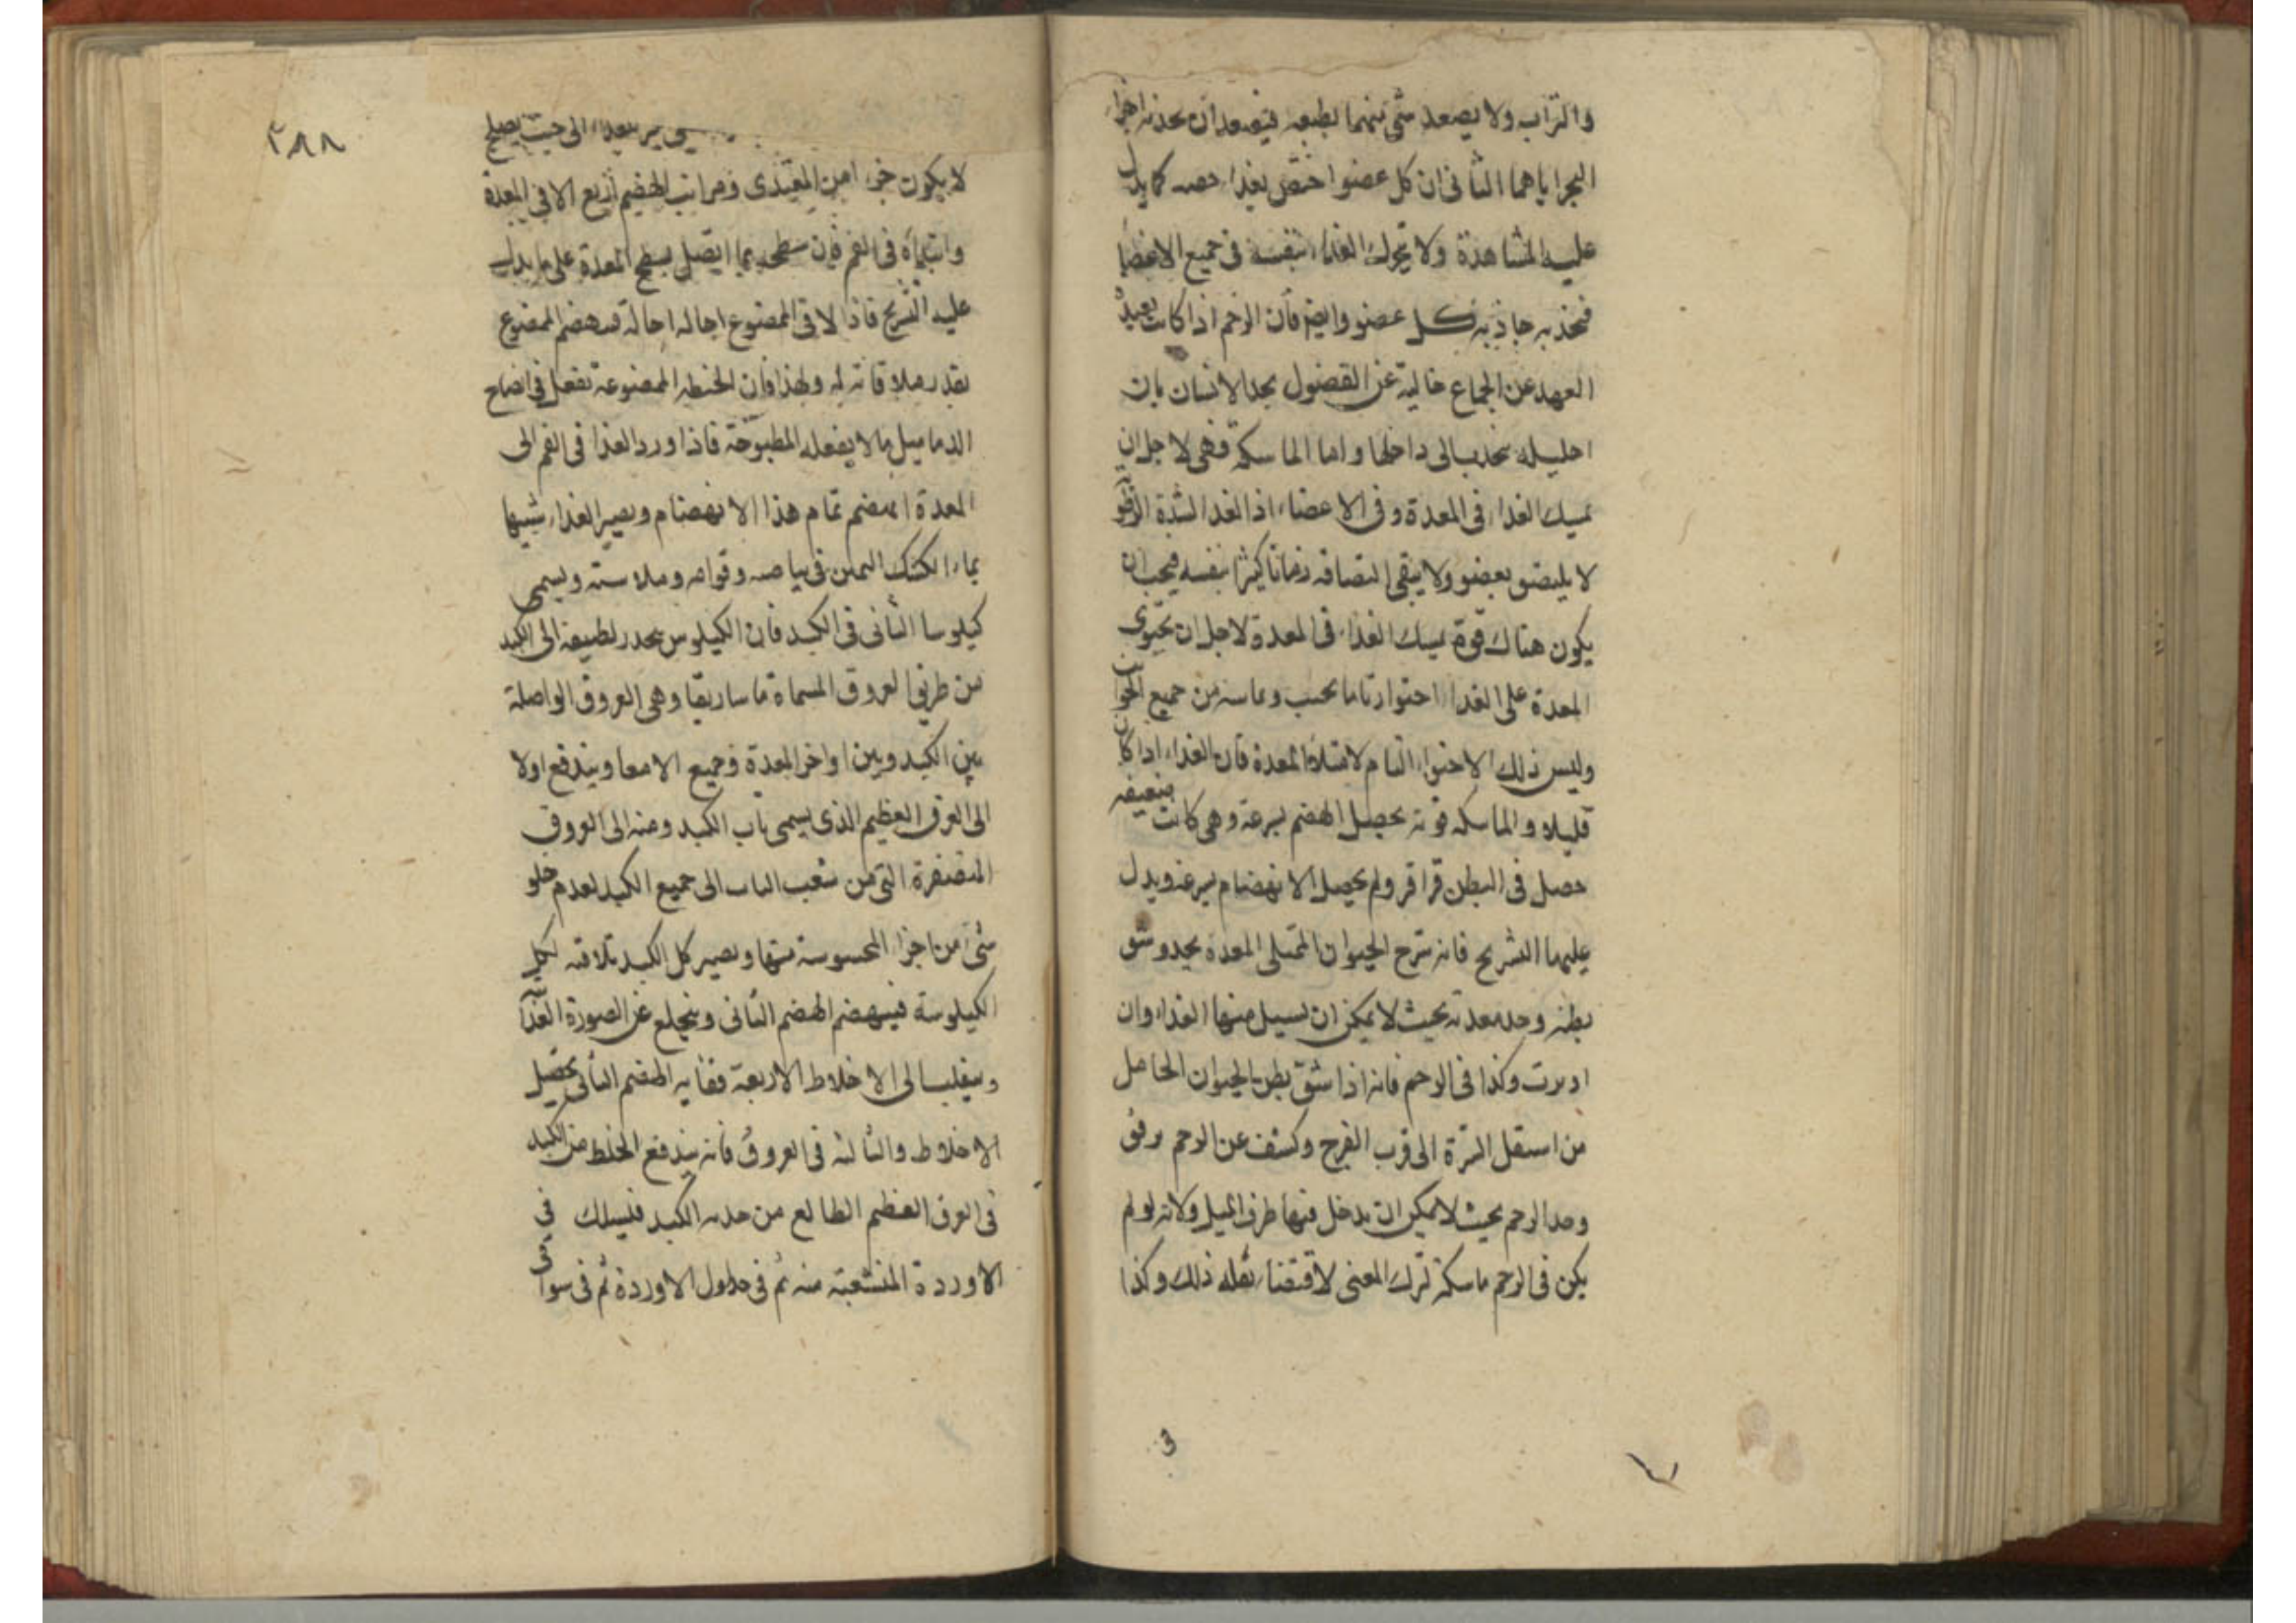 والتراب ولا يصعد شئ منهما بطبعه فيصعدان بجذبه اجزاء
الجر اياهما الثانى ان كل عضو اختص بغذاء حصه كما يدل
عليه المشاهدة ولا يتحرك الغذاء بنفسه فى جميع الاعضا
فيجذبه جاذبة كل عضو وايضا فان الرحم اذا كانت بعيد
العهد عن الجماع خالية عن الفضول يجد الانسان بان
احليله ينجذب الى داخلها واما الماسكة فهى لاجل ان
تمسك الغذاء فى المعدة وفى الاعضاء اذ الغذا لشدة
لا يلتصق بعضو ولا يبقى التصاقه زمانا كثيرا بنفسه فيجب ان
يكون هناك قوة تمسك الغذاء فى المعدة لاجل ان تحتوى
المعدة على الغذاء احتواء تاما بحسب وعاسه من جميع الجوانب
وليس ذلك الاحتواء التام لامتلاء المعدة فان الغذاء اذا كان
قليلا والماسكه قوته يحصل الهضم بسرعة وهى كانت ضعيفه
حصل فى البطن قراقر ولم يحصل الانهضام بسرعة ويدل
عليهما التشريح فانه شرح الحيوان الممتلى المعدة بجد وشق
بطنه وجد معدته بحيث لا يمكن ان يسيل منها الغذاء وان
اديرت وكذا فى الرحم فانه اذا شق بطن الحيوان الحامل
من اسفل السرة الى قرب الفرج وكشف عن الرحم برفق
وجد الرحم بحيث لا يمكن ان يدخل فيها طرف الميل ولانه لو لم
يكن فى الرحم ماسكة لترك المعنى لاقتضاء ثقله ذلك وكذا
٢٨٨
الى حيث يصلح
لا يكون جزءا من المغتذى ومراتب الهضم اربع الا فى المعدة
وابتداه فى الفم فان سطحه بما اتصل بسطح المعدة على ما يدل
عليه التشريح فاذا لاقى الممضوغ احاله احالة فيهضم الممضوغ
بقدر ملاقاته له ولهذا فان الحنطه الممضوغة تفعل فى انضاج
الدماميل ما لا يفعله المطبوخة فاذا ورد الغذا فى الفم الى
المعدة انهضم تمام هذا الانهضام ويصير الغذاء شبيها
بماء الكشك الثخين فى بياضه وقوامه وملاسته ويسمى
كيلوسا الثانى فى الكبد فان الكيلوس ينحدر لطيفه الى الكبد
من طريق العروق المسماة ماساريقا وهى العروق الواصلة
بين الكبد وبين اواخر المعدة وجميع الامعا ويندفع اولا
الى العرق العظيم الذى يسمى باب الكبد ومنه الى العروق
المتصغرة التى من شعب الباب الى جميع الكبد لعدم خلو
شئ من اجزا المحسوسة منها ويصير كل الكبد بملاقته لكل
الكيلوسة فينهضم الهضم الثانى وينخلع عن الصورة الغذائية
وينقلب الى الاخلاط الاربعة فغايه الهضم الثانى تحصيل
الاخلاط والثالثه فى العروق فانه يندفع الخلط من الكبد
فى العرق العظيم الطالع من حدبه الكبد فيسلك فى
الاوردة المنشعبة منه ثم فى جداول الاوردة ثم فى سواقى